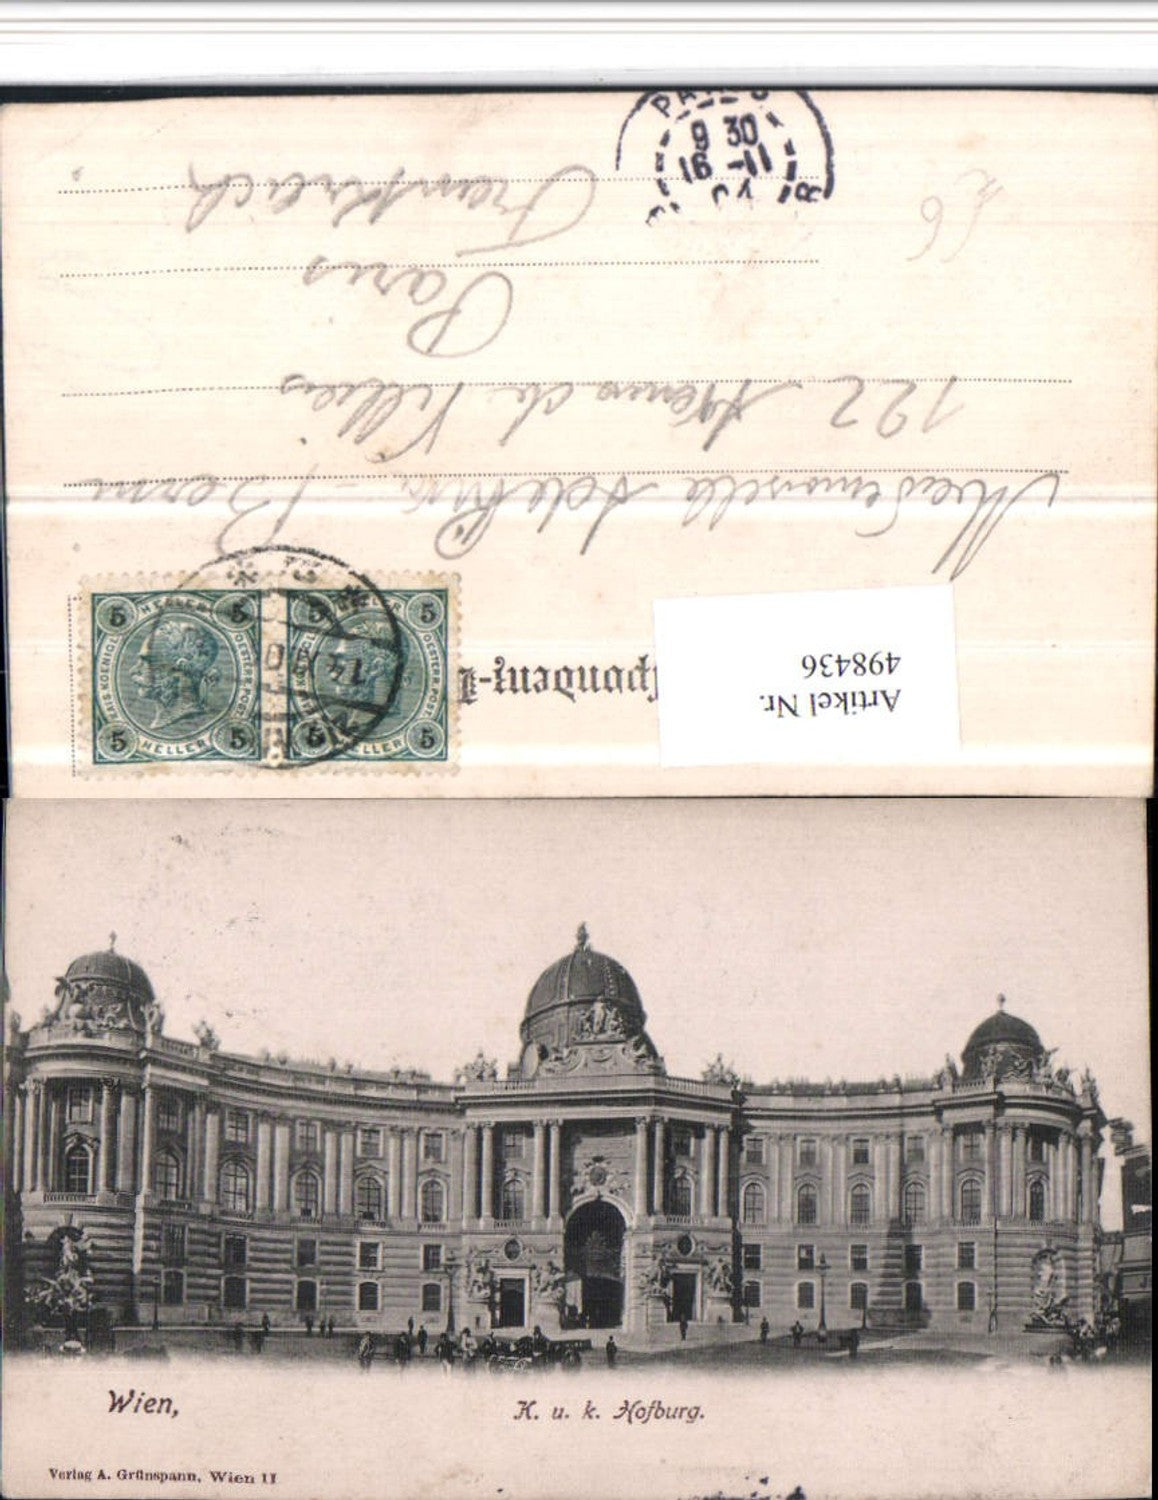 PARIS
9 30
16 -11
Frankreich
Paris
122 Avenue de Villiers
Mademoiselle
5 HELLER 5
KAIS. KOENIGL. OESTERR. POST
5 HELLER 5
5 HELLER 5
OESTERR. POST
5 HELLER 5
Artikel Nr.
498436
Wien,
K. u. k. Hofburg.
Verlag A. Grünspann, Wien II